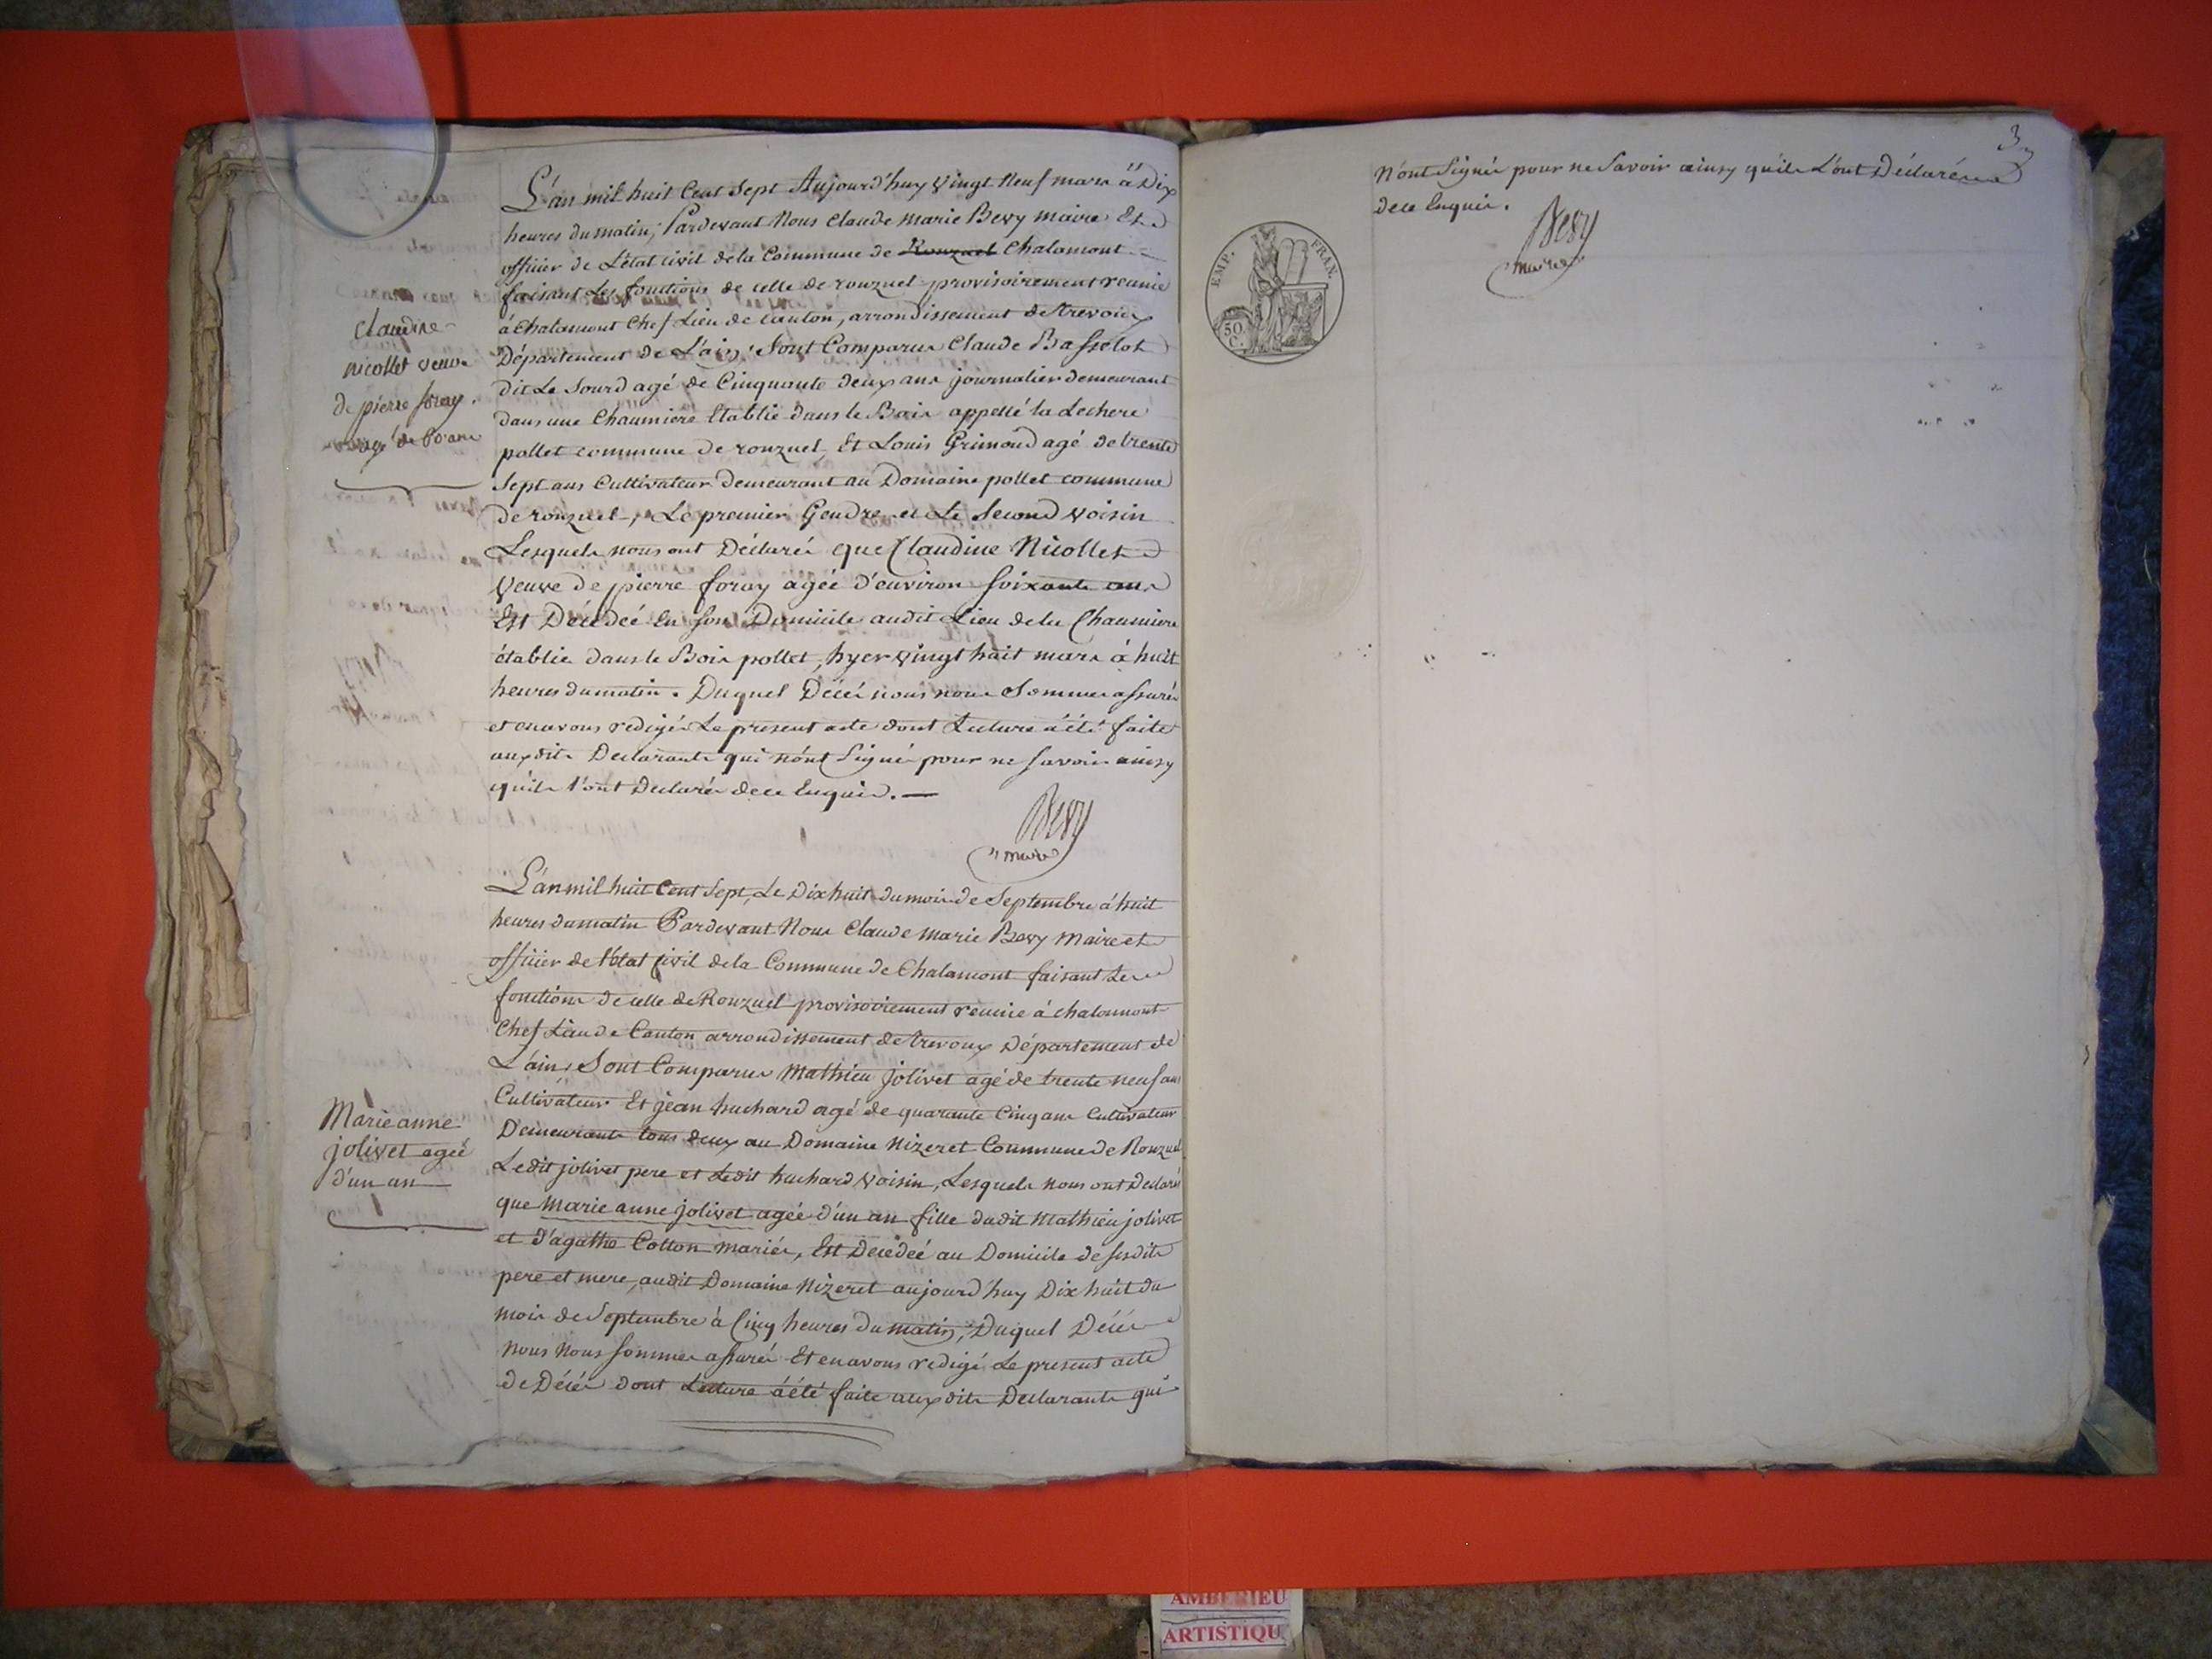 L'an mil huit Cent Sept Aujourd'huy vingt Neuf mars à Dix
heures du matin, Pardevant Nous Claude Marie Bevy Maire Et
officier de L'état civil de la Commune de Ronzuel Chalamont
faisant Les fonctions de celle de ronzuel provisoirement reunie
à Chalamont Chef Lieu de canton, arrondissement de trevoux
Département de L'ain, Sont Comparus Claude Basselot
dit Le Sourd agé de Cinquante deux ans journalier demeurant
dans une Chaumiere Etablie dans le Bois appellé la Lechere
pollet commune de ronzuel, Et Louis Grimoud agé de trente
Sept ans Cultivateur demeurant au Domaine pollet commune
de ronzuel, Le premier Gendre et Le Second Voisin
Lesquels nous ont Déclaré que Claudine Nicollet
Veuve de pierre foray agée d'environ soixante ans
Est Décédeé en son Domicile audit Lieu de la Chaumiere
établie dans le Bois pollet, hyer vingt huit mars à huit
heures du matin. Duquel Décés nous nous Sommes assurés
et en avons redigé Le present acte dont Lecture à été faite
auxdits Declarants qui n'ont Signé pour ne savoir ainsy
qu'ils l'ont Declaré de ce Enquis.
Bevy
maire
claudine
nicollet veuve
de pierre foray.
agé de 60 ans
L'an mil huit Cent Sept, Le Dix huit du mois de Septembre à huit
heures du matin Pardevant Nous Claude Marie Bevy Maire et
officier de l'état Civil de la Commune de Chalamont faisant Les
fonctions de celle de Ronzuel provisoirement reunie à chalamont
Chef Lieu de Canton arrondissement de trevoux Département de
L'ain, Sont Comparus Mathieu jolivet agé de trente neuf ans
Cultivateur Et jean huchard agé de quarante Cinq ans Cultivateur
Demeurants tous deux au Domaine Nizeret Commune de Ronzuel
Ledit jolivet pere et Ledit huchard Voisin, Lesquels nous ont Declaré
que Marie anne jolivet agée d'un an fille dudit Mathieu jolivet
et d'agathe Cotton mariés, Est Decedeé au Domicile de sesdits
pere et mere, audit Domaine Nizeret aujourd'huy Dix huit du
mois de Septembre à Cinq heures du matin, Duquel Décés
nous nous sommes assurés Et en avons redigé Le present acte
de Décés dont Lecture à été faite auxdits Declarants qui
Marie anne
jolivet ageé
d'un an
3
N'ont Signé pour ne Savoir ainsy qu'ils L'ont Déclaré
de ce Enquis.
Bevy
maire
EMP. FRAN.
50
C.
AMBERIEU
ARTISTIQU